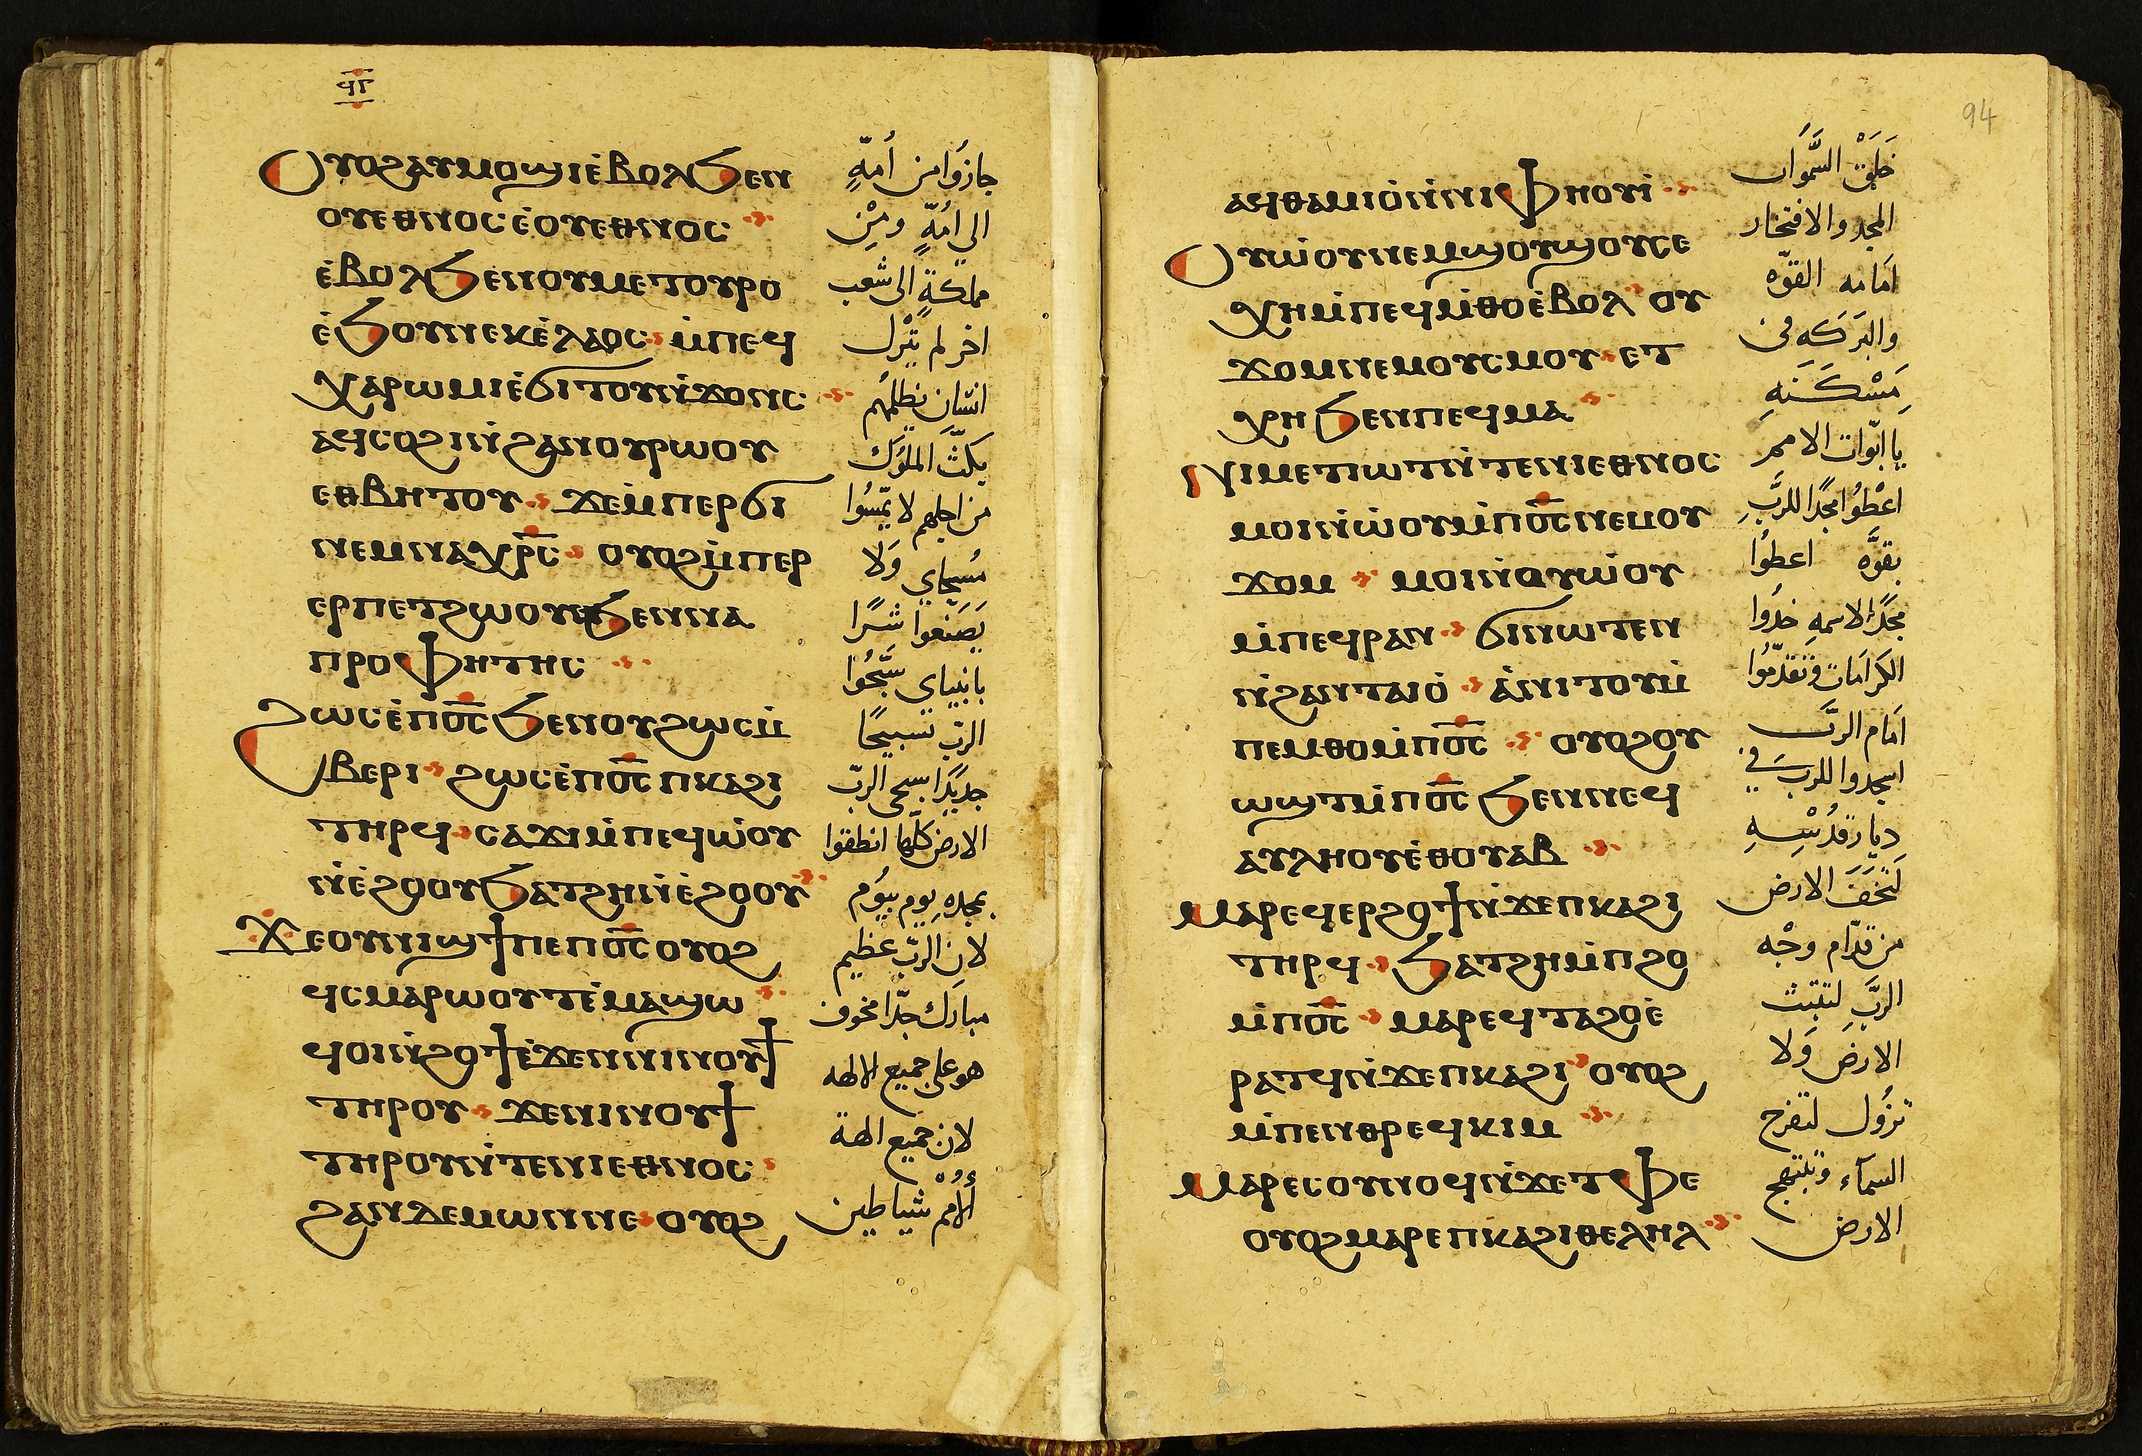 ϥⲅ
Ⲟⲩⲟϩⲁⲩⲙⲟϣⲓⲉ̇ⲃⲟⲗϧⲉⲛ
ⲟⲩⲉⲑⲛⲟⲥⲉ̇ⲟⲩⲉⲑⲛⲟⲥ
ⲉ̇ⲃⲟⲗϧⲉⲛⲟⲩⲙⲉⲧⲟⲩⲣⲟ
ⲉ̇ϧⲟⲩⲛⲉⲕⲉ̇ⲗⲁⲟⲥ ⲙ̇ⲡⲉϥ
ⲭⲁⲣⲱⲙⲓⲉ̇ϭⲓⲧⲟⲩⲛ̇ϫⲟⲛⲥ
ⲁϥⲥⲟϩⲓⲛ̇ϩⲁⲛⲟⲩⲣⲱⲟⲩ
ⲉⲑⲃⲏⲧⲟⲩ ϫⲉⲙ̇ⲡⲉⲣϭⲓ
ⲛⲉⲙⲛⲁⲭⲣ̅ⲥ̅ ⲟⲩⲟϩⲙ̇ⲡⲉⲣ
ⲉⲣⲡⲉⲧϩⲱⲟⲩϧⲉⲛⲛⲁ
ⲡⲣⲟⲫⲏⲧⲏⲥ
Ϩⲱⲥⲉ̇ⲡⲟ̅ⲥ̅ϧⲉⲛⲟⲩϩⲱⲥⲙ̇
ⲃⲉⲣⲓ ϩⲱⲥⲉ̇ⲡⲟ̅ⲥ̅ⲡⲕⲁϩⲓ
ⲧⲏⲣϥ ⲥⲁϫⲓⲙ̇ⲡⲉϥⲱ̇ⲟⲩ
ⲛ̇ⲉ̇ϩⲟⲟⲩϧⲁⲧϩⲏⲛ̇ⲉ̇ϩⲟⲟⲩ
Ϫⲉⲟⲩⲛⲓϣϯⲡⲉⲡⲟ̅ⲥ̅ⲟⲩⲟϩ
ϥⲥⲙⲁⲣⲱⲟⲩⲧⲉ̇ⲙⲁϣⲱ
ϥⲟⲓⲛ̇ϩⲟϯⲉ̇ϫⲉⲛⲛⲓⲛⲟⲩϯ
ⲧⲏⲣⲟⲩ ϫⲉⲛⲓⲛⲟⲩϯ
ⲧⲏⲣⲟⲩⲛ̇ⲧⲉⲛⲓⲉⲑⲛⲟⲥ
ϩⲁⲛⲇⲉⲙⲱⲛⲛⲉ ⲟⲩⲟϩ
جازوا من أمّةٍ
الي امّةٍ ومِن
مملكةٍ الى شعب
اخر لم يترك
انسَان يظلمُهم
بكّت الملوك
من اجلهم لا تمسّوا
مُسحاي ولا
تصنعوا شرًا
بانبياي سَبّحُوا
الربّ تسبيحًا
جديدًا سبحى الربّ
الارض كلّها انطقوا
بمجدهِ يوم بيوم
لان الربّ عظيم
مبارك جدًا مخوف
هو على جميع الالهه
لان جميع الهة
الأمم شياطين
94
ⲁϥⲑⲁⲙⲓⲟ̇ⲛ̇ⲛⲓⲫⲏⲟⲩⲓ̇
Ⲟⲩⲱ̇ⲟⲩⲛⲉⲙϣⲟⲩϣⲟⲩⲥⲉ
ⲭⲏⲙ̇ⲡⲉϥⲙ̇ⲑⲟⲉ̇ⲃⲟⲗ ⲟⲩ
ϫⲟⲙⲛⲉⲙⲟⲩⲥⲙⲟⲩ ⲉⲧ
ⲭⲏϧⲉⲛⲡⲉϥⲙⲁ
Ⲛⲓⲙⲉⲧⲓⲱⲧⲛ̇ⲧⲉⲛⲓⲉⲑⲛⲟⲥ
ⲙⲟⲓⲛ̇ⲱ̇ⲟⲩⲙ̇ⲡⲟ̅ⲥ̅ⲛⲉⲙⲟⲩ
ϫⲟⲙ ⲙⲟⲓⲛ̇ⲟⲩⲱ̇ⲟⲩ
ⲙ̇ⲡⲉϥⲣⲁⲛ ϭⲓⲛⲱⲧⲉⲛ
ⲛ̇ϩⲁⲛⲧⲁⲓⲟ̇ ⲁ̇ⲛⲓⲧⲟⲩⲙ̇
ⲡⲉⲙⲑⲟⲙ̇ⲡⲟ̅ⲥ̅ ⲟⲩⲟϩⲟⲩ
ⲱϣⲧⲙ̇ⲡⲟ̅ⲥ̅ϧⲉⲛⲛⲉϥ
ⲁⲩⲗⲏⲟⲩⲉ̇ⲑⲟⲩⲁⲃ
Ⲙⲁⲣⲉϥⲉⲣϩⲟϯⲛ̇ϫⲉⲡⲕⲁϩⲓ
ⲧⲏⲣϥ ϧⲁⲧϩⲏⲙ̇ⲡϩⲟ
ⲙ̇ⲡⲟ̅ⲥ̅ ⲙⲁⲣⲉϥⲧⲁϩⲟⲉ̇
ⲣⲁⲧϥⲛ̇ϫⲉⲡⲕⲁϩⲓ ⲟⲩⲟϩ
ⲙ̇ⲡⲉⲛⲑⲣⲉϥⲕⲓⲙ
Ⲙⲁⲣⲉⲥⲟⲩⲛⲟϥⲛ̇ϫⲉⲧⲫⲉ
ⲟⲩⲟϩⲙⲁⲣⲉⲡⲕⲁϩⲓⲑⲉⲗⲏⲗ
خلق السّموات
المجد والافتخار
امَامه القوّه
والبَرَكَه في
مَسْكَنهِ
يا ابّوات الامم
اعْطُوا مجدًا للربِّ
بقوّه اعطوُا
مجدًا لاسمهِ خدُوا
الكرامَات وتقدّمُوا
امَام الربّ
اسجدوا للرب في
ديار قدْسِهِ
لتَخَف الارض
من قدّام وجْه
الربّ لتثبت
الارض وَلا
تزُول لتفرح
السمآء وتبتهج
الارض